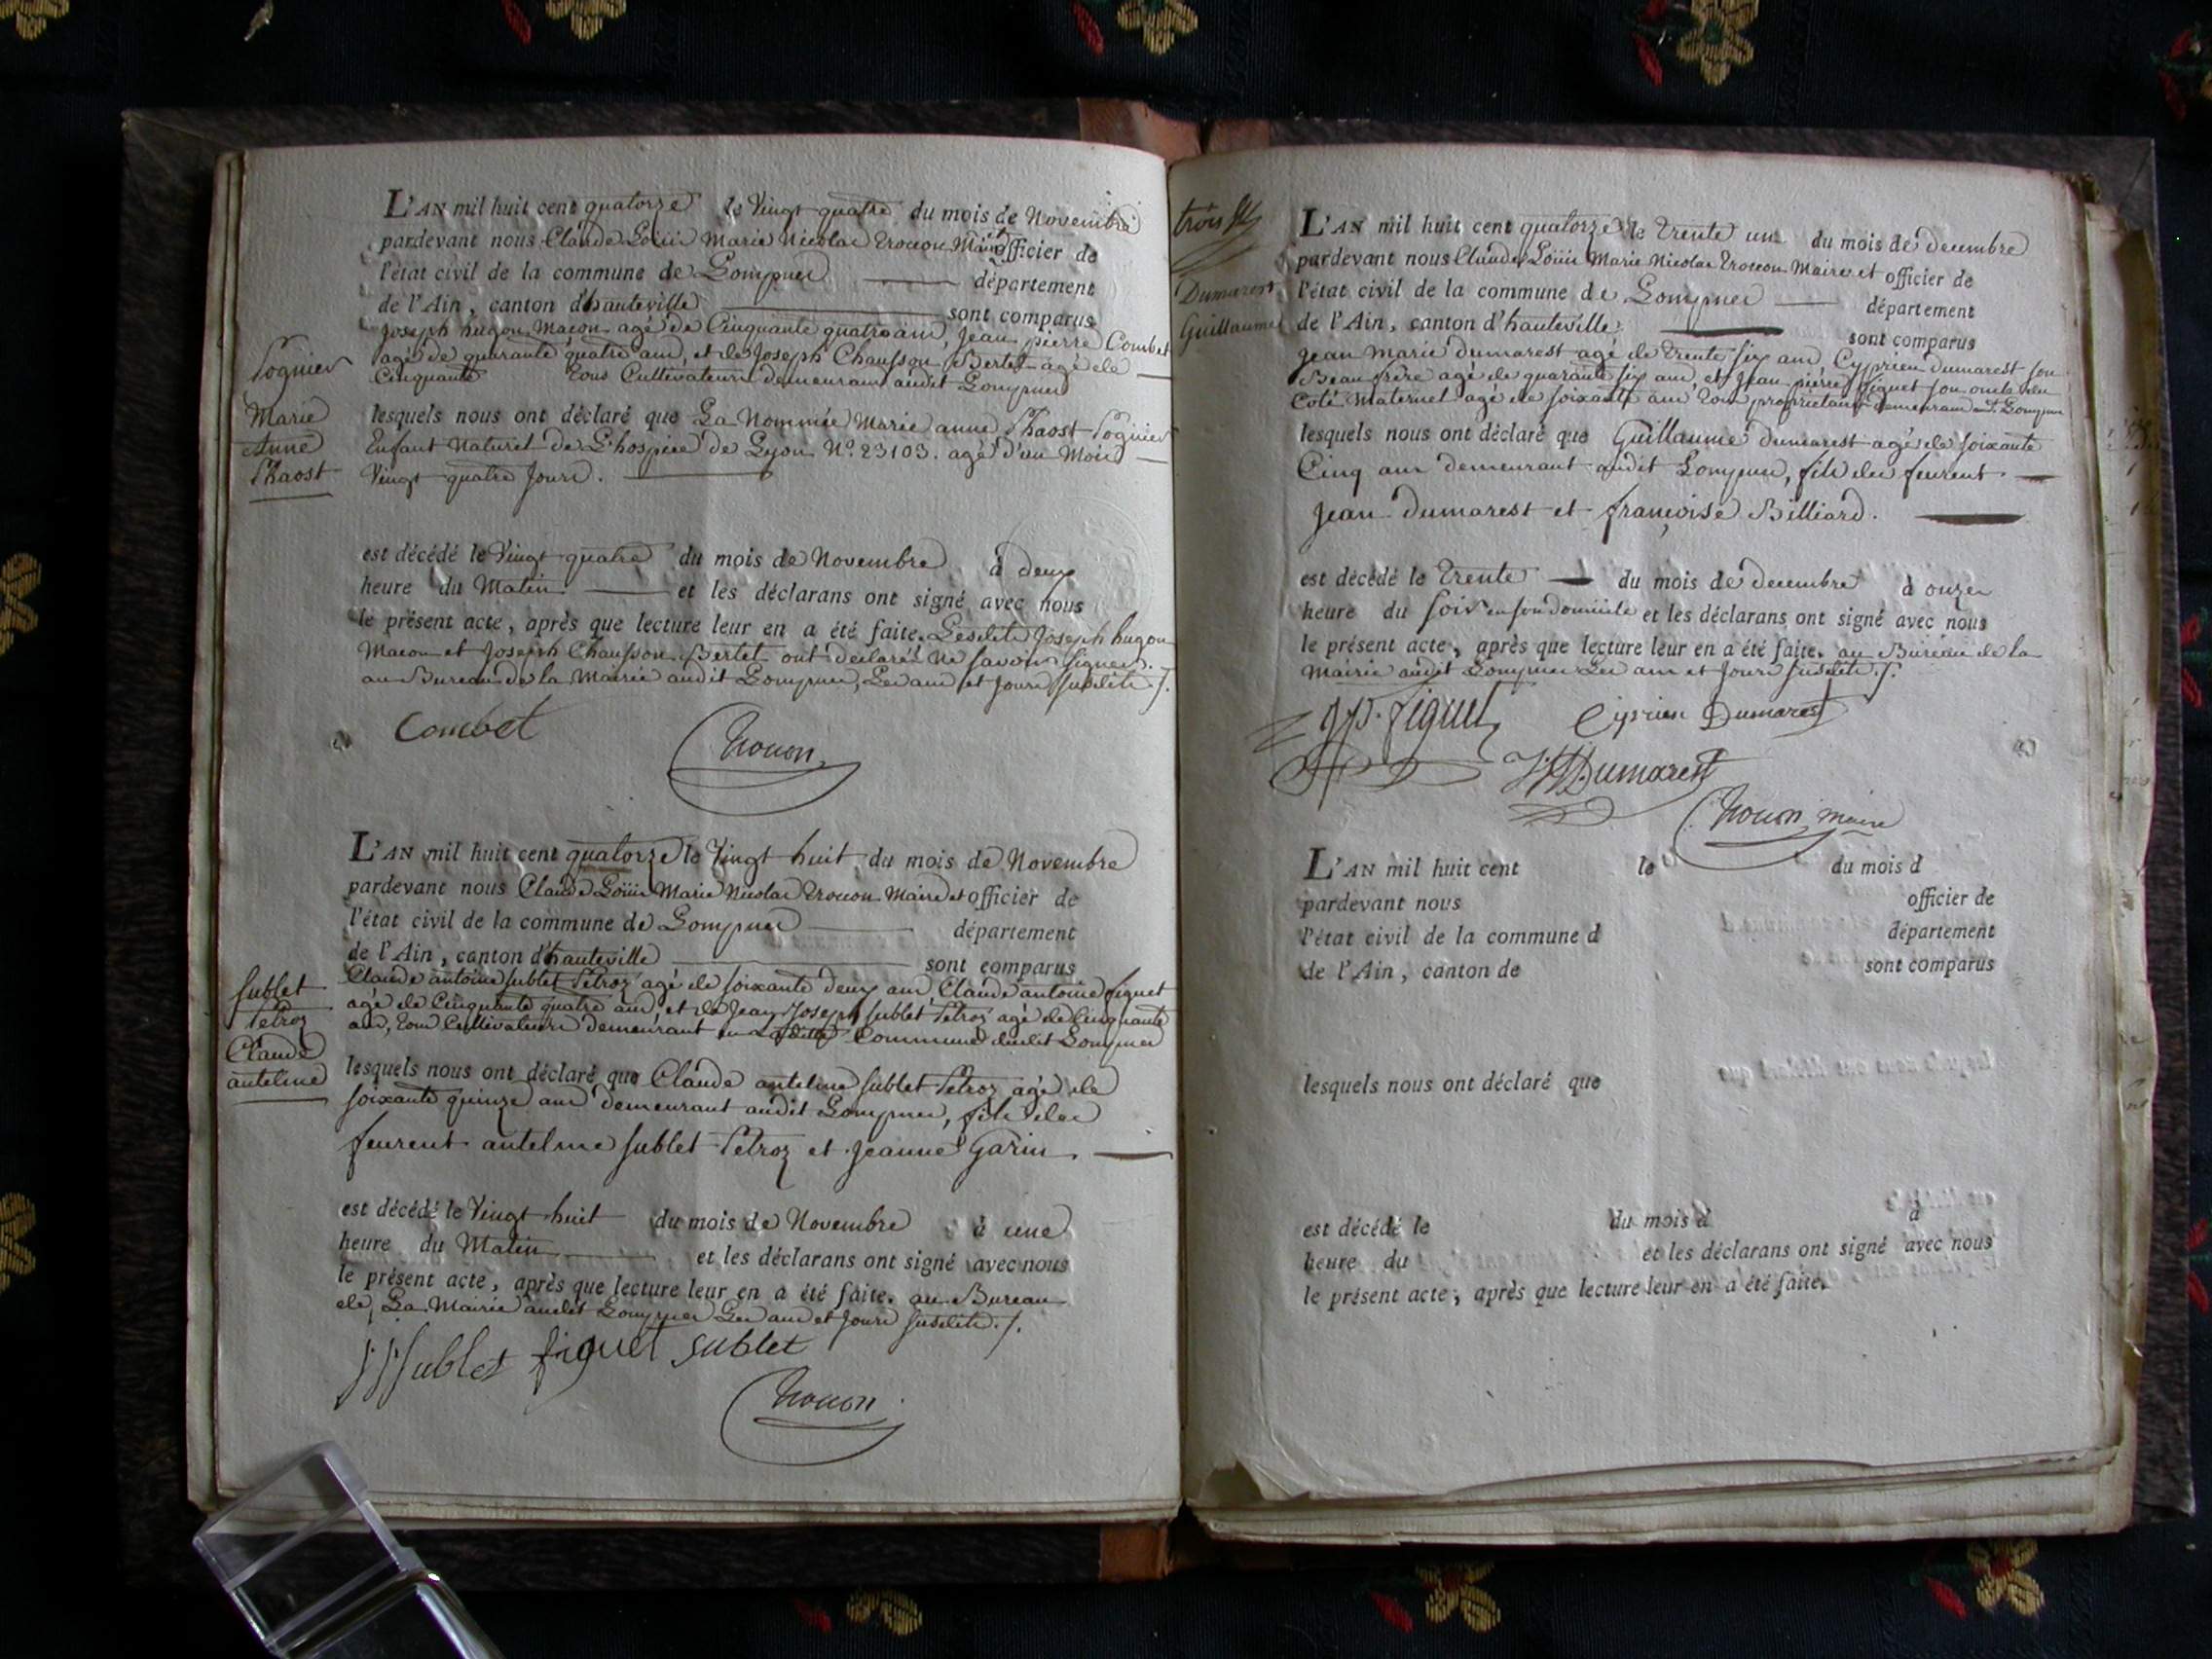 L'AN mil huit cent quatorze le Vingt quatre du mois de Novembre
pardevant nous Claude Loüis Marie Nicolas Trocon Maire officier de
l'état civil de la commune de Lompnes département
de l'Ain, canton d'hauteville sont comparus
Joseph hugon Macon agé de Cinquante quatre ans, Jean pierre Combet
agé de quarante quatre ans, et de Joseph Chausson Bertet agé de
Cinquante tous Cultivateurs demeurans audit Lompnes
Pognier
Marie
Anne
Thaost
lesquels nous ont déclaré que La Nommée Marie anne Thaost Pognier
Enfant Naturel de L'hospice de Lyon N.º 23103. agé d'un Mois
Vingt quatre Jours.
est décédé le Vingt quatre du mois de Novembre à deux
heure du Matin et les déclarans ont signé avec nous
le présent acte, après que lecture leur en a été faite. Lesdits Joseph hugon
Macon et Joseph Chausson Bertet ont déclarés Ne savoir signer.
au Bureau de la Mairie audit Lompnes, Les ans et Jours susdits ./.
Combet
Trocon
L'AN mil huit cent quatorze le Vingt huit du mois de Novembre
pardevant nous Claude Loüis Marie Nicolas Trocon Maire et officier de
l'état civil de la commune de Lompnes département
de l'Ain, canton d'hauteville sont comparus
Claude antoine sublet Pétroz agé de soixante deux ans, Claude antoine figuet
agé de Cinquante quatre ans, et de Jean Joseph sublet Pétroz agé de Cinquante
ans, tous Cultivateurs demeurant en Laditte Commune dudit Lompnes
sublet
Petroz
Claude
antelme
lesquels nous ont déclaré que Claude antelme sublet Pétroz agé de
soixante quinze ans demeurant audit Lompnes, fils des
feurent antelme sublet Pétroz et Jeanne Garin.
est décédé le Vingt huit du mois de Novembre à une
heure du Matin et les déclarans ont signé avec nous
le présent acte, après que lecture leur en a été faite. au Bureau
de La Mairie audit Lompnes Les ans et Jours susdits ./.
JJ Sublet figuet sublet
Trocon
trois
Dumarest
Guillaume
L'AN mil huit cent quatorze le trente un du mois de decembre
pardevant nous Claude Loüis Marie Nicolas Trocon Maire et officier de
l'état civil de la commune de Lompnes département
de l'Ain, canton d'hauteville sont comparus
Jean Marie dumarest agé de trente six ans Cyprien dumarest son
Beau frère agé de quarante six ans, et Jean pierre figuet son oncle du
Coté Maternel agé de soixante ans tous propriétaires demeurans aud.t Lompnes
lesquels nous ont déclaré que Guillaume dumarest agé de soixante
Cinq ans demeurant audit Lompnes, fils des feurent
Jean dumarest et françoise Billiard.
est décédé le trente du mois de decembre à onze
heure du soir en son domicile et les déclarans ont signé avec nous
le présent acte, après que lecture leur en a été faite. au Bureau de la
Mairie audit Lompnes Les ans et Jours susdits ./.
J.p. figuet Ciprien Dumarest
JM Dumarest
Trocon maire
L'AN mil huit cent le du mois d
pardevant nous officier de
l'état civil de la commune d département
de l'Ain, canton de sont comparus
lesquels nous ont déclaré que
est décédé le du mois d à
heure du et les déclarans ont signé avec nous
le présent acte, après que lecture leur en a été faite.